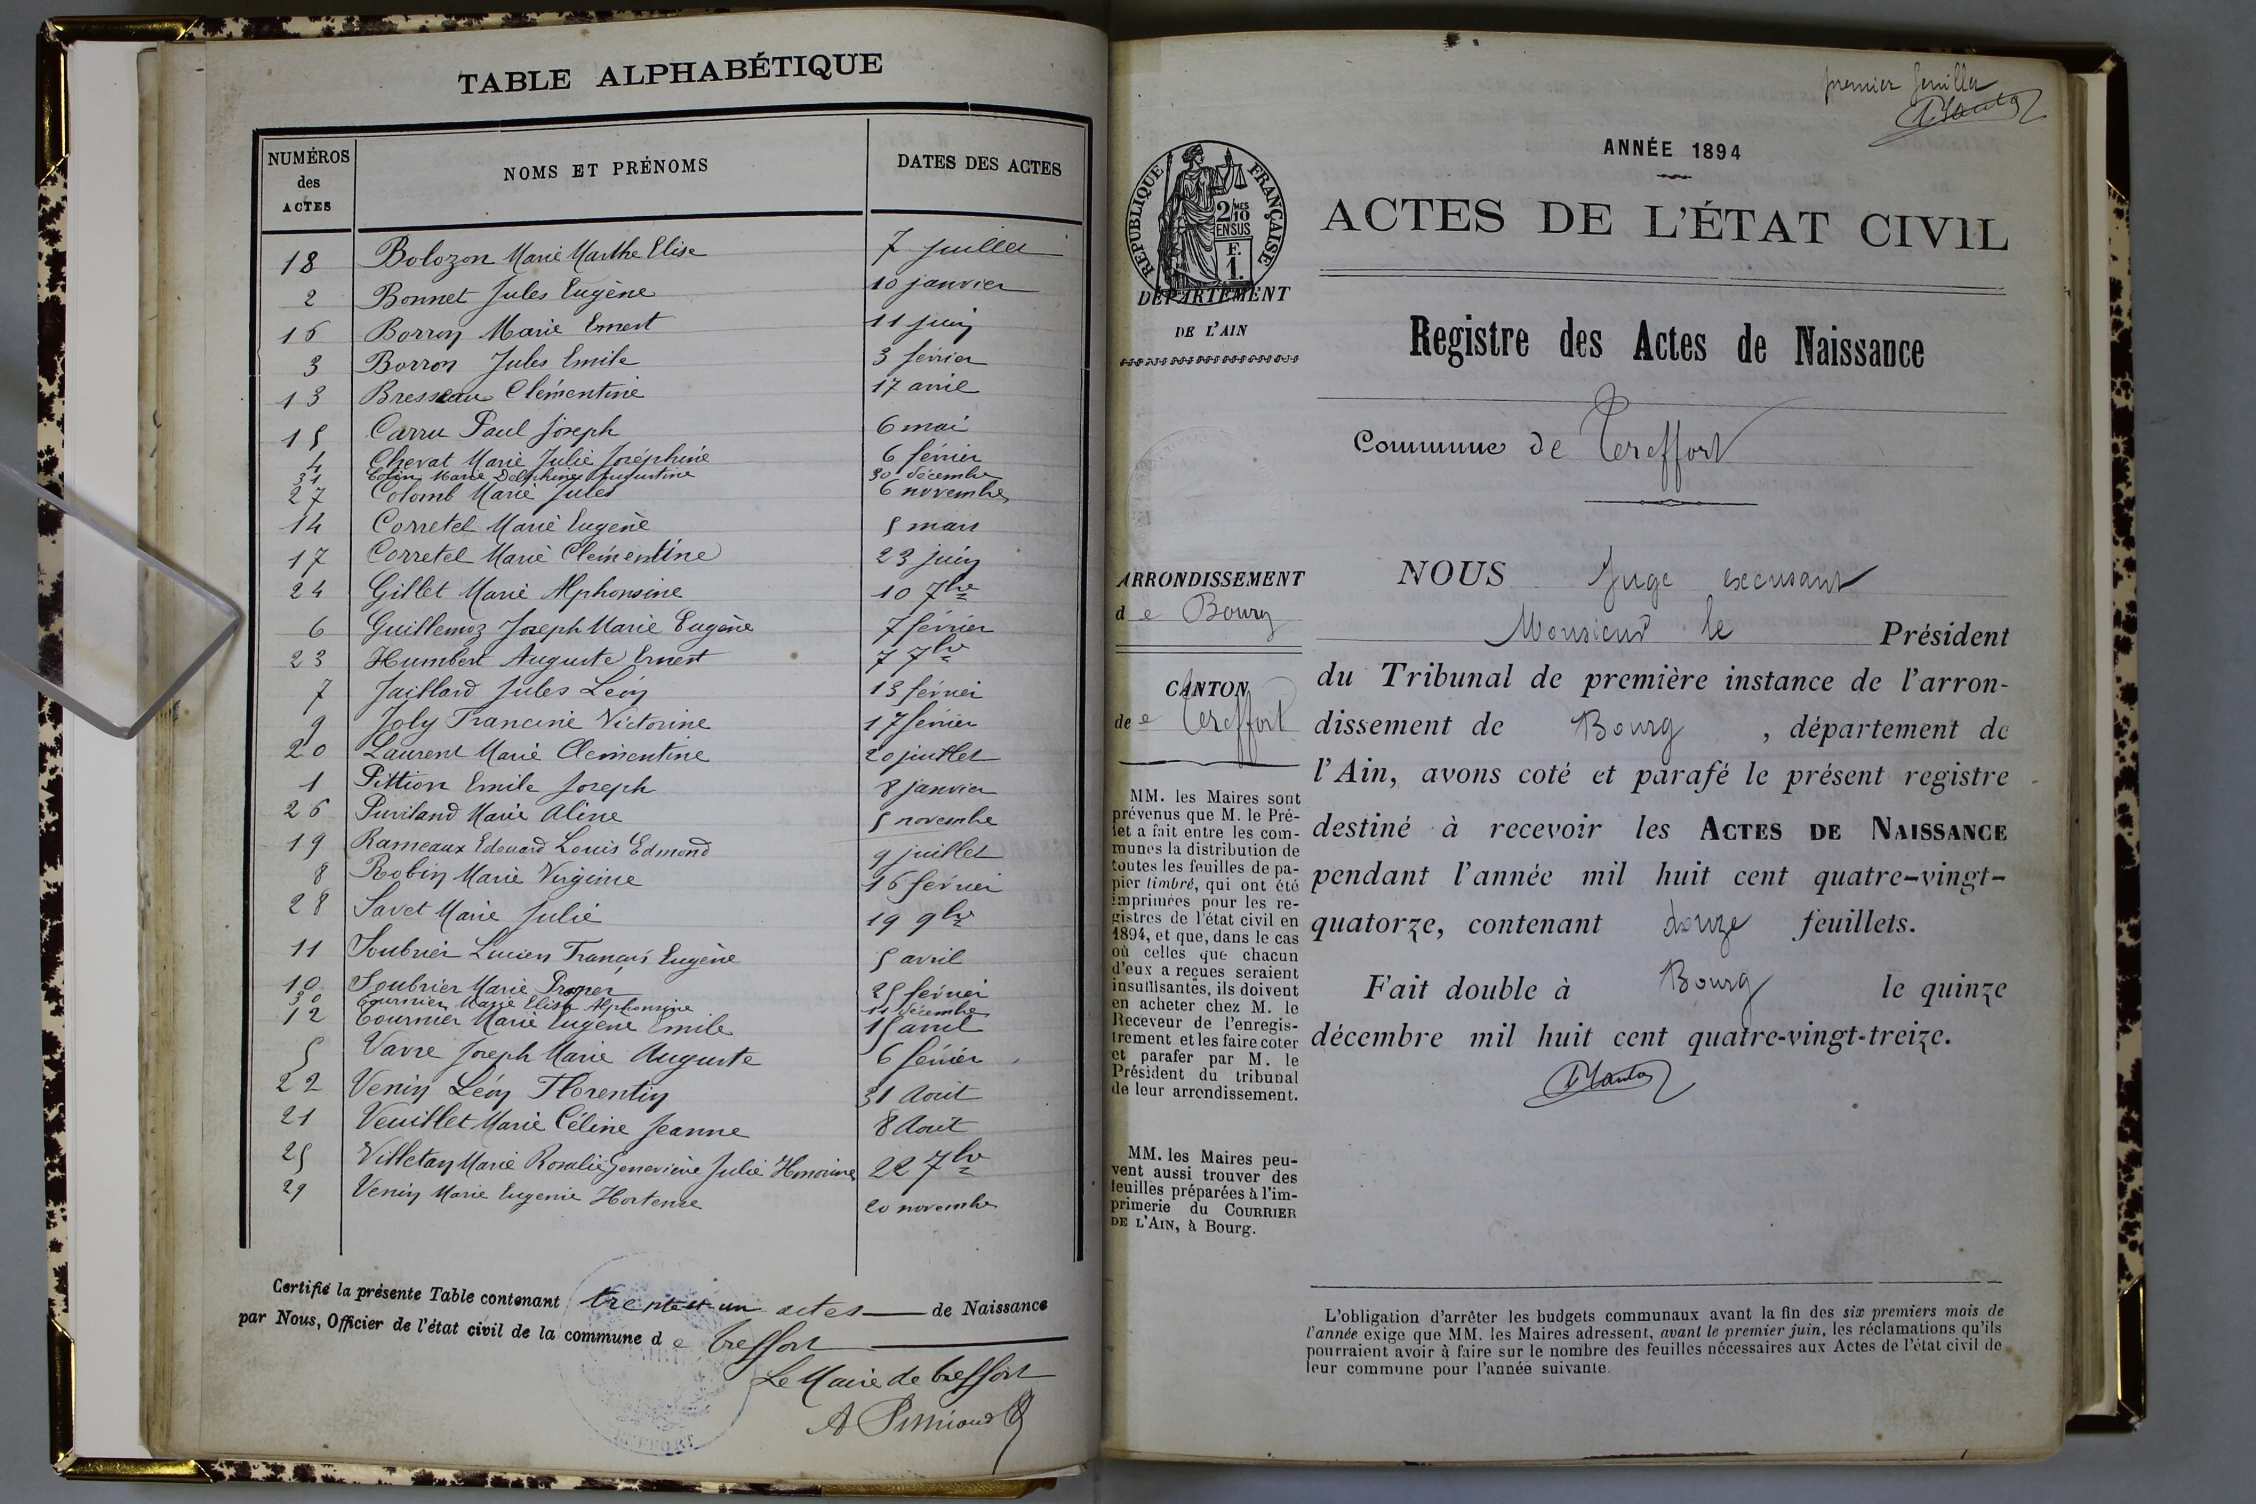 TABLE ALPHABÉTIQUE
NUMÉROS des ACTES NOMS ET PRÉNOMS DATES DES ACTES
18 Bolozon Marie Marthe Elise 7 juillet
2 Bonnet Jules Eugène 10 janvier
16 Borron Marie Ernest 11 juin
3 Borron Jules Emile 3 février
13 Bresseau Clémentine 17 avril
15 Carru Paul Joseph 6 mai
4 Chevat Marie Julie Joséphine 6 février
31 Colin Marie Delphine Augustine 30 décembre
27 Colomb Marie Jules 6 novembre
14 Corretel Marie Eugène 5 mars
17 Corretel Marie Clementine 23 juin
24 Gillet Marie Alphonsine 10 7bre
6 Guillemoz Joseph Marie Eugène 7 février
23 Humbert Auguste Ernest 7 7bre
7 Jaillard Jules Léon 13 février
9 Joly Francine Victorine 17 février
20 Laurent Marie Clementine 20 juillet
1 Pittion Emile Joseph 8 janvier
26 Marie Aline 5 novembre
19 Rameaux Edouard Louis Edmond 9 juillet
8 Robin Marie Virginie 16 février
28 Savet Marie Julie 19 9bre
11 Soubrier Lucien François Eugène 5 avril
10 Soubrier Marie Prosper 25 février
30 Tournier Marie Elisa Alphonsine 11 décembre
12 Tournier Marie Eugène Emile 15 avril
5 Vavre Joseph Marie Auguste 6 février
22 Venin Léon Florentin 31 Aout
21 Veuillet Marie Céline Jeanne 8 Aout
25 Villetan Marie Rosalie Geneviève Julie Honorine 22 7bre
29 Venin Marie Eugenie Hortense 20 novembre
Certifié la présente Table contenant trente et un actes de Naissance
par Nous, Officier de l'état civil de la commune de Treffort
Le Maire de Treffort
premier feuillet
ANNÉE 1894
RÉPUBLIQUE FRANÇAISE
2/10 MES
EN SUS
F.
1.
ACTES DE L'ÉTAT CIVIL
DÉPARTEMENT
DE L'AIN
Registre des Actes de Naissance
Commune de Treffort
ARRONDISSEMENT
de Bourg
CANTON
de e Treffort
MM. les Maires sont
prévenus que M. le Pré-
fet a fait entre les com-
munes la distribution de
toutes les feuilles de pa-
pier timbré, qui ont été
imprimées pour les re-
gistres de l'état civil en
1894, et que, dans le cas
où celles que chacun
d'eux a reçues seraient
insuffisantes, ils doivent
en acheter chez M. le
Receveur de l'enregis-
trement et les faire coter
et parafer par M. le
Président du tribunal
de leur arrondissement.
MM. les Maires peu-
vent aussi trouver des
feuilles préparées à l'im-
primerie du COURRIER
DE L'AIN, à Bourg.
NOUS Juge excusant
Monsieur le Président
du Tribunal de première instance de l'arron-
dissement de Bourg, département de
l'Ain, avons coté et parafé le présent registre
destiné à recevoir les ACTES DE NAISSANCE
pendant l'année mil huit cent quatre-vingt-
quatorze, contenant douze feuillets.
Fait double à Bourg le quinze
décembre mil huit cent quatre-vingt-treize.
L'obligation d'arrêter les budgets communaux avant la fin des six premiers mois de
l'année exige que MM. les Maires adressent, avant le premier juin, les réclamations qu'ils
pourraient avoir à faire sur le nombre des feuilles nécessaires aux Actes de l'état civil de
leur commune pour l'année suivante.